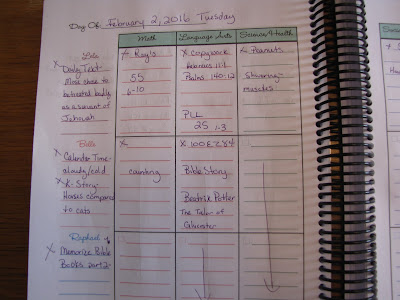 Day Of: February 2, 2016 Tuesday
Math
Language Arts
Science & Health
X Daily Text-
Moses chose to
be treated badly
as a servant of
Jehovah
Ray's
55
6-10
X Copywork
Psalms 140:12
PLL
25 1-3
Peanuts
Shivering-
muscles
Bella
X Calendar Time-
cloudy/cold
X R-Story-
Horses compared
to cats
X
counting
X 100 EZ
Bible Story
Beatrix Potter
The Tale of
Raphael
X Memorize Bible
Books part 2-